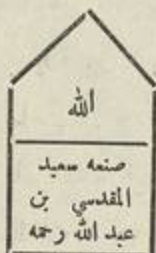 الله
صنعه سعيد
المقدسي بن
عبد الله رحمه